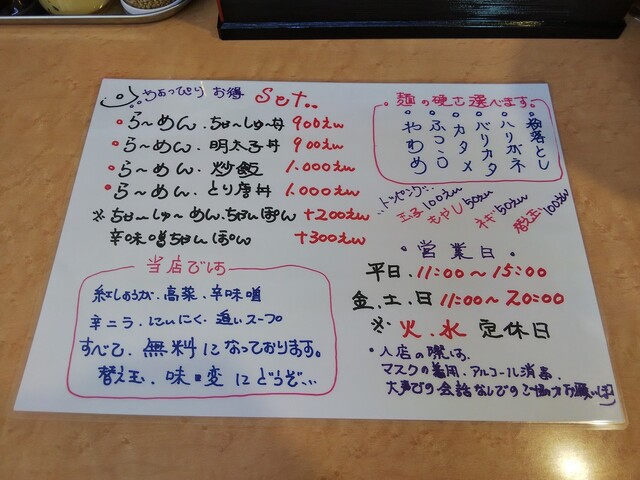 ちょっぴり お得 Set..
ら〜めん.ちゃーしゅー丼 900えん
ら〜めん.明太子丼 900えん
ら〜めん.炒飯 1.000えん
ら〜めん.とり唐丼 1.000えん
※ちゃ〜しゅ〜めん.ちゃんぽん +200えん
辛味噌ちゃんぽん +300えん
当店では
紅しょうが.高菜.辛味噌
辛ニラ.にんにく.追いスープ
すべて.無料になっております。
替え玉.味変にどうぞ...
麺の硬さ選べます。
粉落とし
ハリガネ
バリカタ
カタメ
ふつう
やわめ
トッピング
玉子100えん
もやし50えん
ネギ50えん
替玉100えん
営業日
平日.11:00〜15:00
金.土.日 11:00〜20:00
※火.水 定休日
入店の際は.
マスクの着用.アルコール消毒
大声での会話なしでのご協力お願い